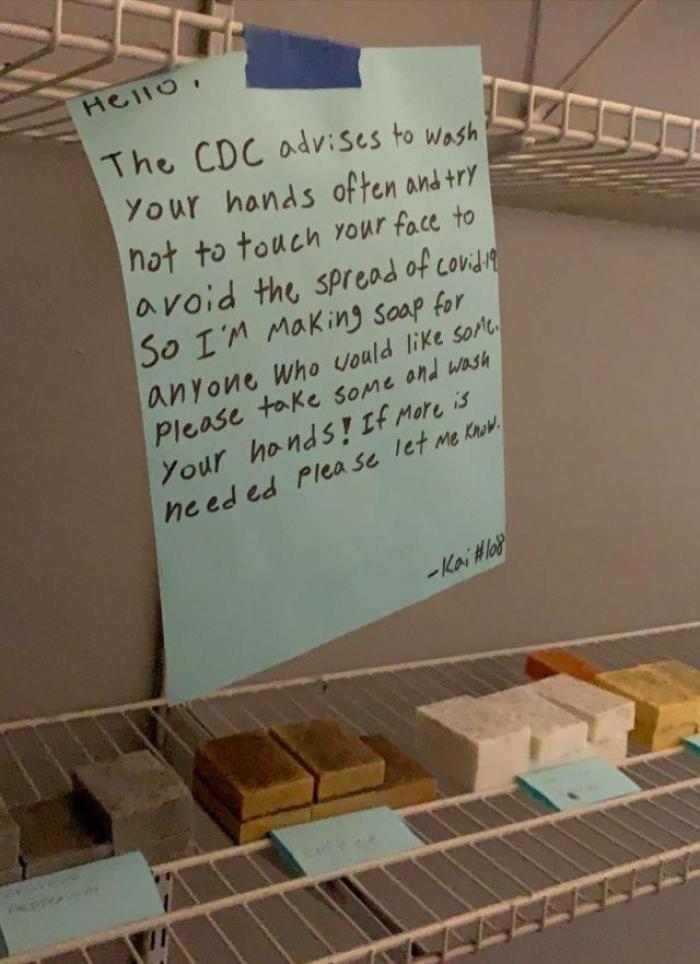 Hello,
The CDC advises to wash
your hands often and try
not to touch your face to
avoid the spread of covid-19
So I'm making soap for
anyone who would like some.
Please take some and wash
your hands! If more is
needed please let me know.
-Kai #108
coffee
peppermint